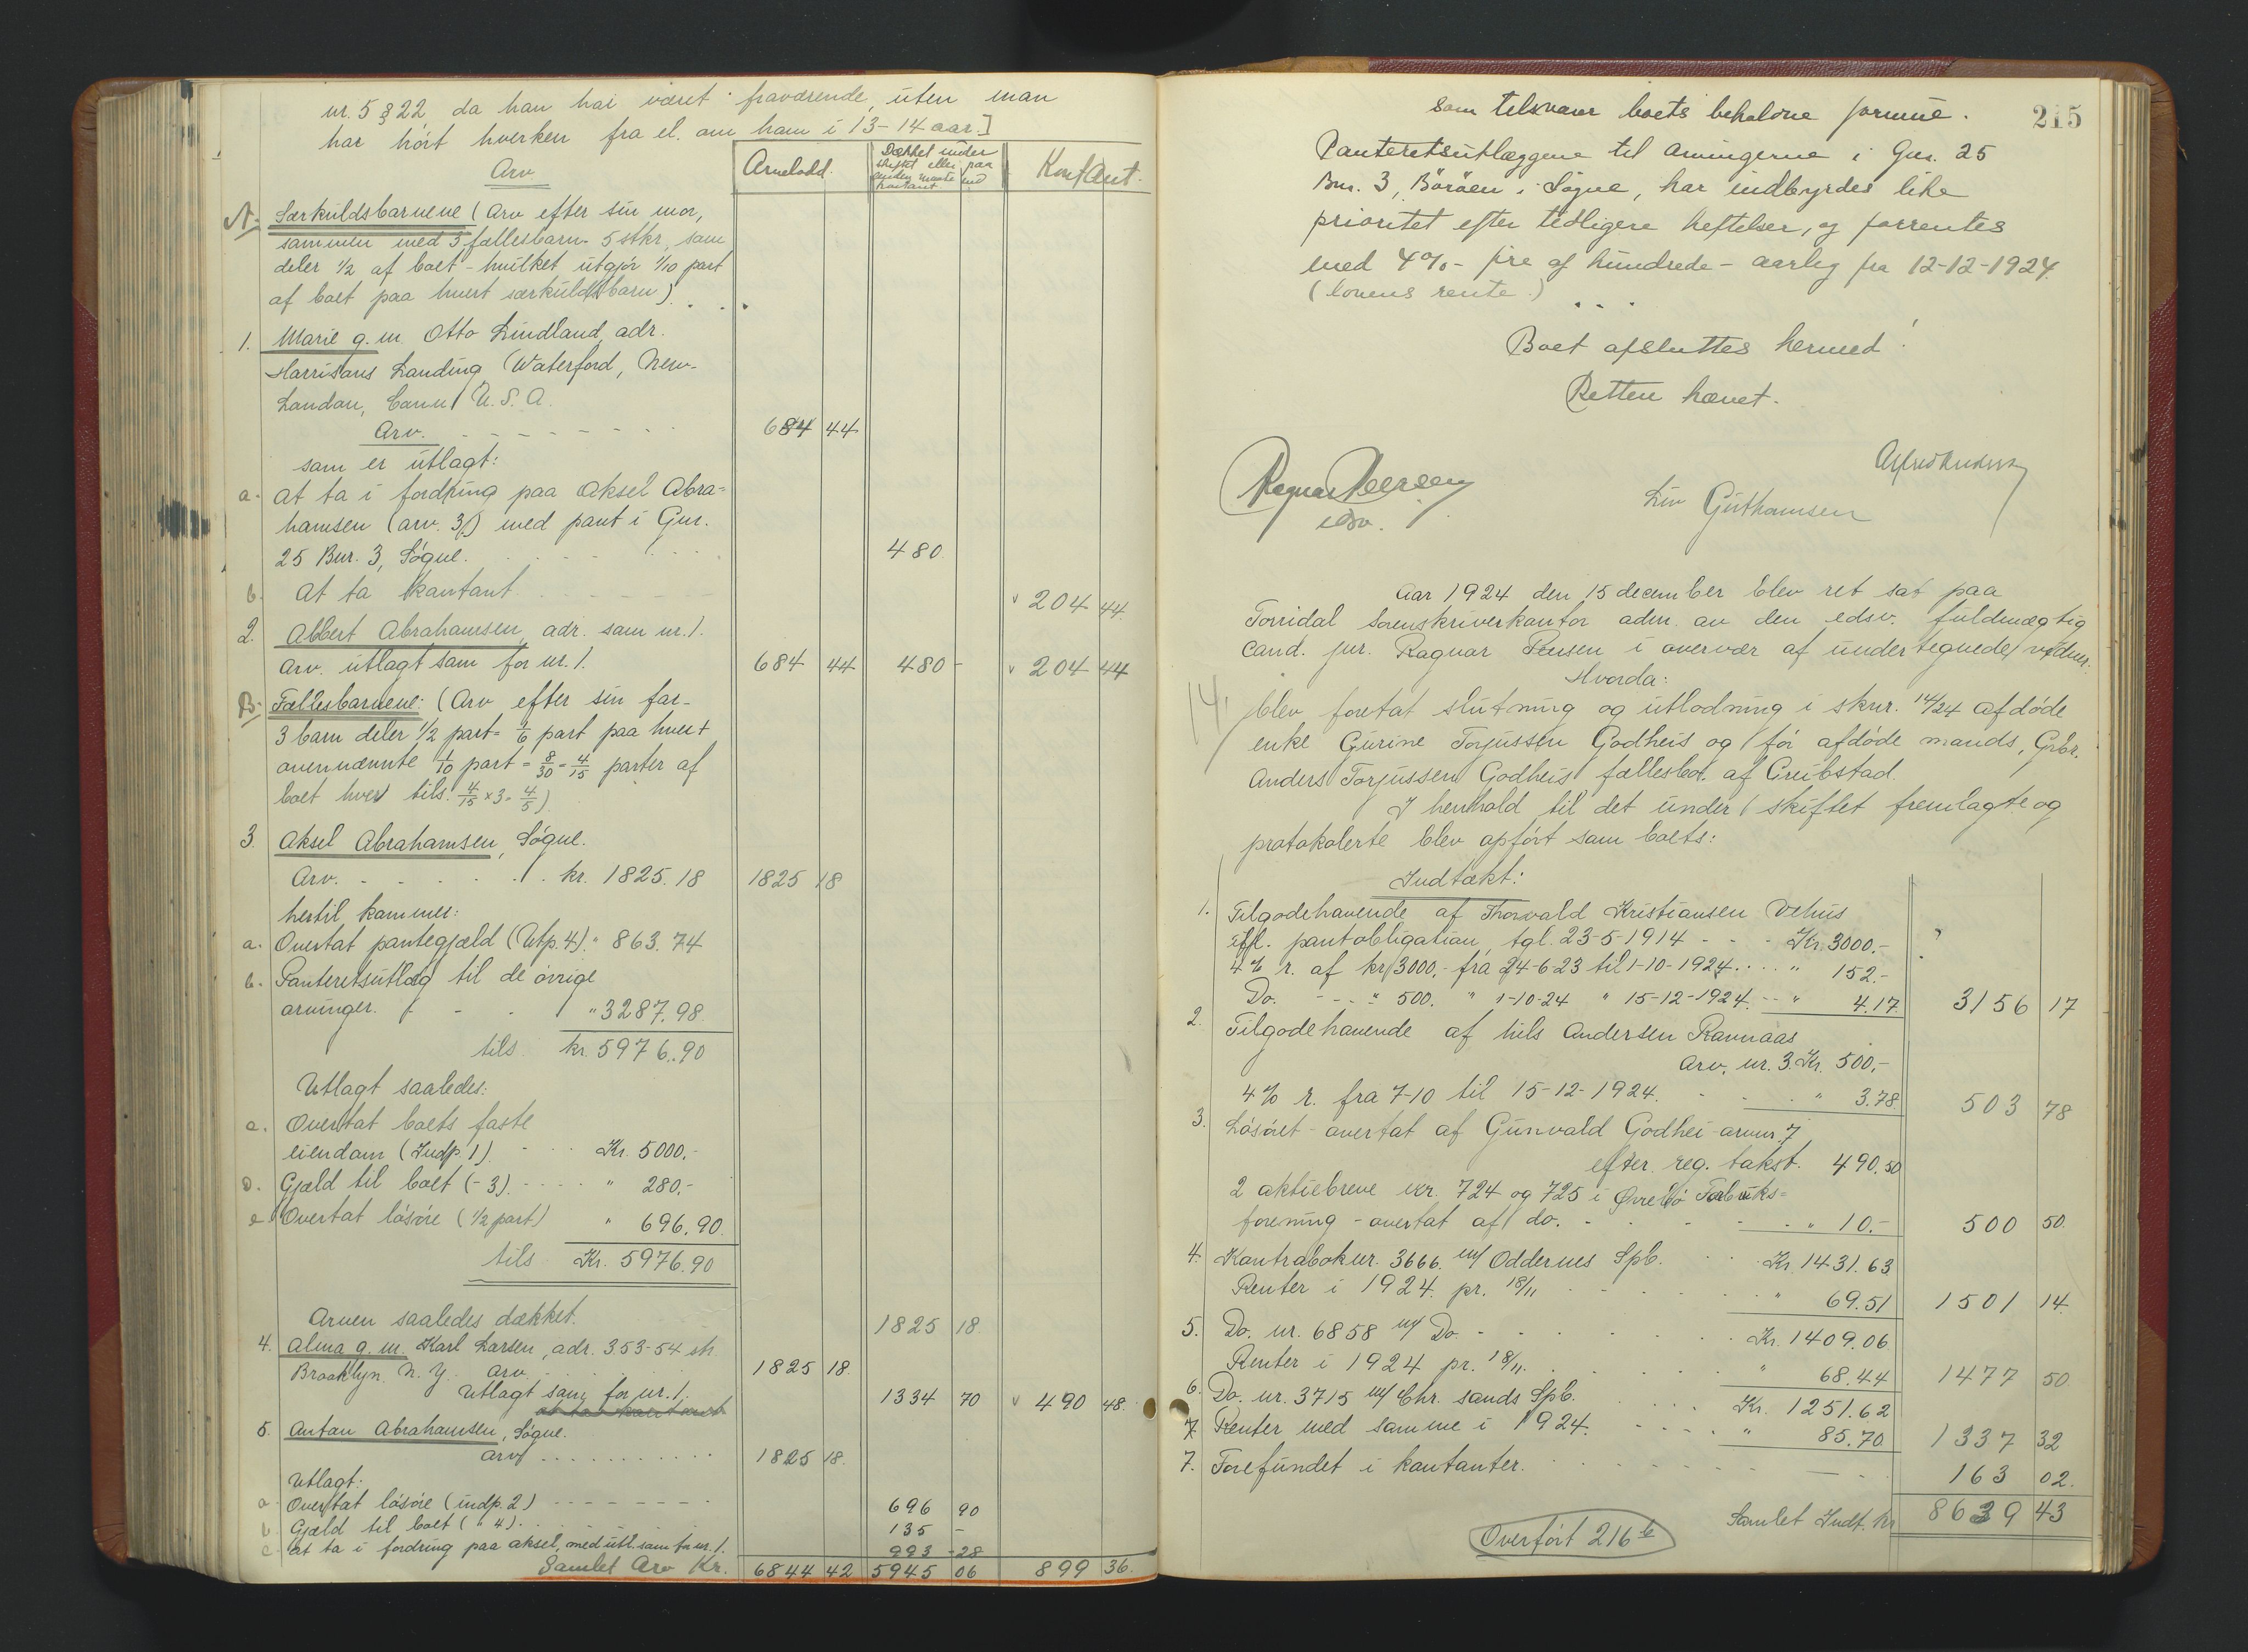 nr. 5 § 22, da han har været fraværende, uten man
har hørt hverken fra el. om ham i 13-14 aar.]
Arv
Arvelodd.
Dækket under skiftet eller paa anden maate end kontant
Kontant.
A. Særkuldsbarnene (Arv efter sin mor,
sammen med 3 fællesbarn - 5 stkr, som
deler 1/2 af boet - hvilket utgjør 1/10 part
af boet paa hvert særkuldsbarn).
1. Marie g. m. Otto Lindland, adr.
Harrisons Landing (Waterford, New-
London, Conn. U.S.A.
Arv. 684 44
som er utlagt:
a. At ta i fordring paa Aksel Abra=
hamsen (arv. 3) med pant i Gnr.
25 Bnr. 3, Søgne. 480
b. At ta kontant v 204 44.
2. Albert Abrahamsen, adr. som nr. 1.
Arv. utlagt som for nr. 1. 684 44 480 - v 204 44
B. Fællesbarnene: (Arv efter sin far-
3 barn deler 1/2 part = 1/6 part paa hvert
ovennævnte 1/10 part = 8/30 = 4/15 parter af
boet hver tils. 4/15 x 3 = 4/5)
3. Aksel Abrahamsen, Søgne.
Arv. kr. 1825.18 1825 18
hertil kommer:
a. Overtat pantegjæld (Utp. 4). " 863.74
b. Panteretsutlæg til de øvrige
arvinger. " 3287.98.
tils. kr. 5976.90
Utlagt saaledes:
c. Overtat boets faste
eiendom (Indp. 1). Kr. 5000.-
d. Gjæld til boet (- 3). " 280.-
e. Overtat løsøre (1/2 part) " 696.90.
tils. Kr. 5976.90
Arven saaledes dækket. 1825 18.
4. Alma g. m. Karl Larsen, adr. 353-54 str.
Brooklyn. N. Y. Arv. 1825 18.
Utlagt som for nr. 1. 1334 70 v 490 48.
at ta kontant
5. Anton Abrahamsen, Søgne.
Arv 1825 18.
Utlagt:
a. Overtat løsøre (indp. 2) 696 90
b. Gjæld til boet (" 4). 135 -
c. At ta i fordring paa Aksel, med utl. som for nr. 1. 993 - 28
Samlet Arv Kr. 6844 42 5945 06 899 36.
215
som tilsvarer boets beholdne formue.
Panteretsutlæggene til arvingerne i Gnr. 25
Bnr. 3, Børøen i Søgne, har indbyrdes like
prioritet efter tidligere heftelser, og forrentes
med 4% - fire af hundrede - aarlig fra 12-12-1924.
(lovens rente.)
Boet afsluttes hermed!
Retten hævet.
Alfred
Ragnar
edsv.
Liv Guthormsen
Aar 1924 den 15 december blev ret sat paa
Torridal sorenskriverkontor adm. av den edsv. fuldmægtig
cand. jur. Ragnar i overvær af undertegnede vidner.
Hvorda:
14. blev foretat slutning og utlodning i sknr. 14/24 afdøde
enke Gurine Torjussen Godheis og før afdøde mands, Grbr.
Anders Torjussen Godheis fællesbo. af
I henhold til det under skiftet fremlagte og
protokolerte blev opført som boets:
Indtækt:
1. Tilgodehavende af Thorvald Kristiansen Vehus
ifl. pantobligation, tgl. 23-5-1914 - - - Kr. 3000.-
4% r. af kr. 3000.- fra 24-6-23 til 1-10-1924 " 152.-
Do. - - - " 500. " 1-10-24 " 15-12-1924. - - " 4.17. 3156 17
2. Tilgodehavende af Nils Andersen Ravnaas
Arv. nr. 3. Kr. 500,-
4% r. fra 7-10 til 15-12-1924. " 3.78 503 78
3. Løsøret - overtat af Gunvald Godhei - arv nr. 7
efter reg. takst. 490.50
2 aktiebreve nr. 724 og 725 i Øvrebø Fabriks=
forening - overtat af do. " 10.- 500 50.
4. Kontrabok nr. 3666. m/ Oddernes Spb. Kr. 1431.63
Renter i 1924. pr. 18/11 " 69.51 1501 14.
5. Do. nr. 6858 m/ Do. Kr. 1409.06
Renter i 1924 pr. 18/11. " 68.44 1477 50
6. Do. nr. 3715 m/ Chr.sands Spb. Kr. 1251.62
7. Renter med samme i 1924. " 85.70 1337 32
7. Forefundet i kontanter. 163 02.
Samlet Indt. kr 8639 43
Overført 216 b